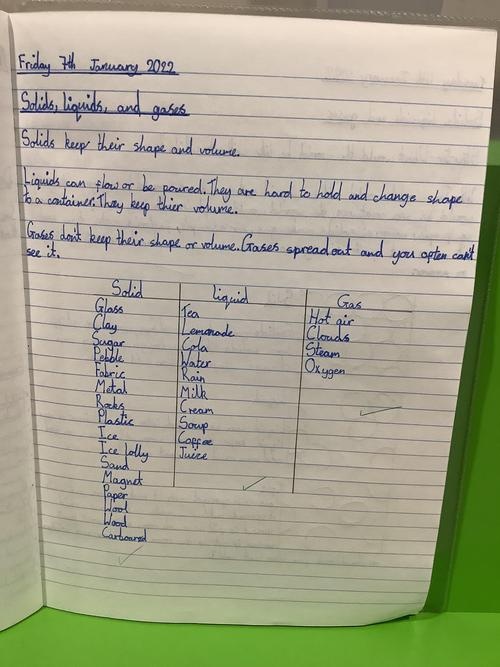 Friday 7th January 2022
Solids, liquids, and gases
Solids keep their shape and volume.
Liquids can flow or be poured. They are hard to hold and change shape
to a container. They keep thier volume.
Gases don't keep their shape or volume. Gases spread out and you often can't
see it.
Solid Liquid Gas
Glass Tea Hot air
Clay Lemonade Clouds
Sugar Cola Steam
Pebble Water Oxygen
Fabric Rain
Metal Milk
Rocks Cream
Plastic Soup
Ice Coffee
Ice lolly Juice
Sand
Magnet
Paper
Wool
Wood
Carboard